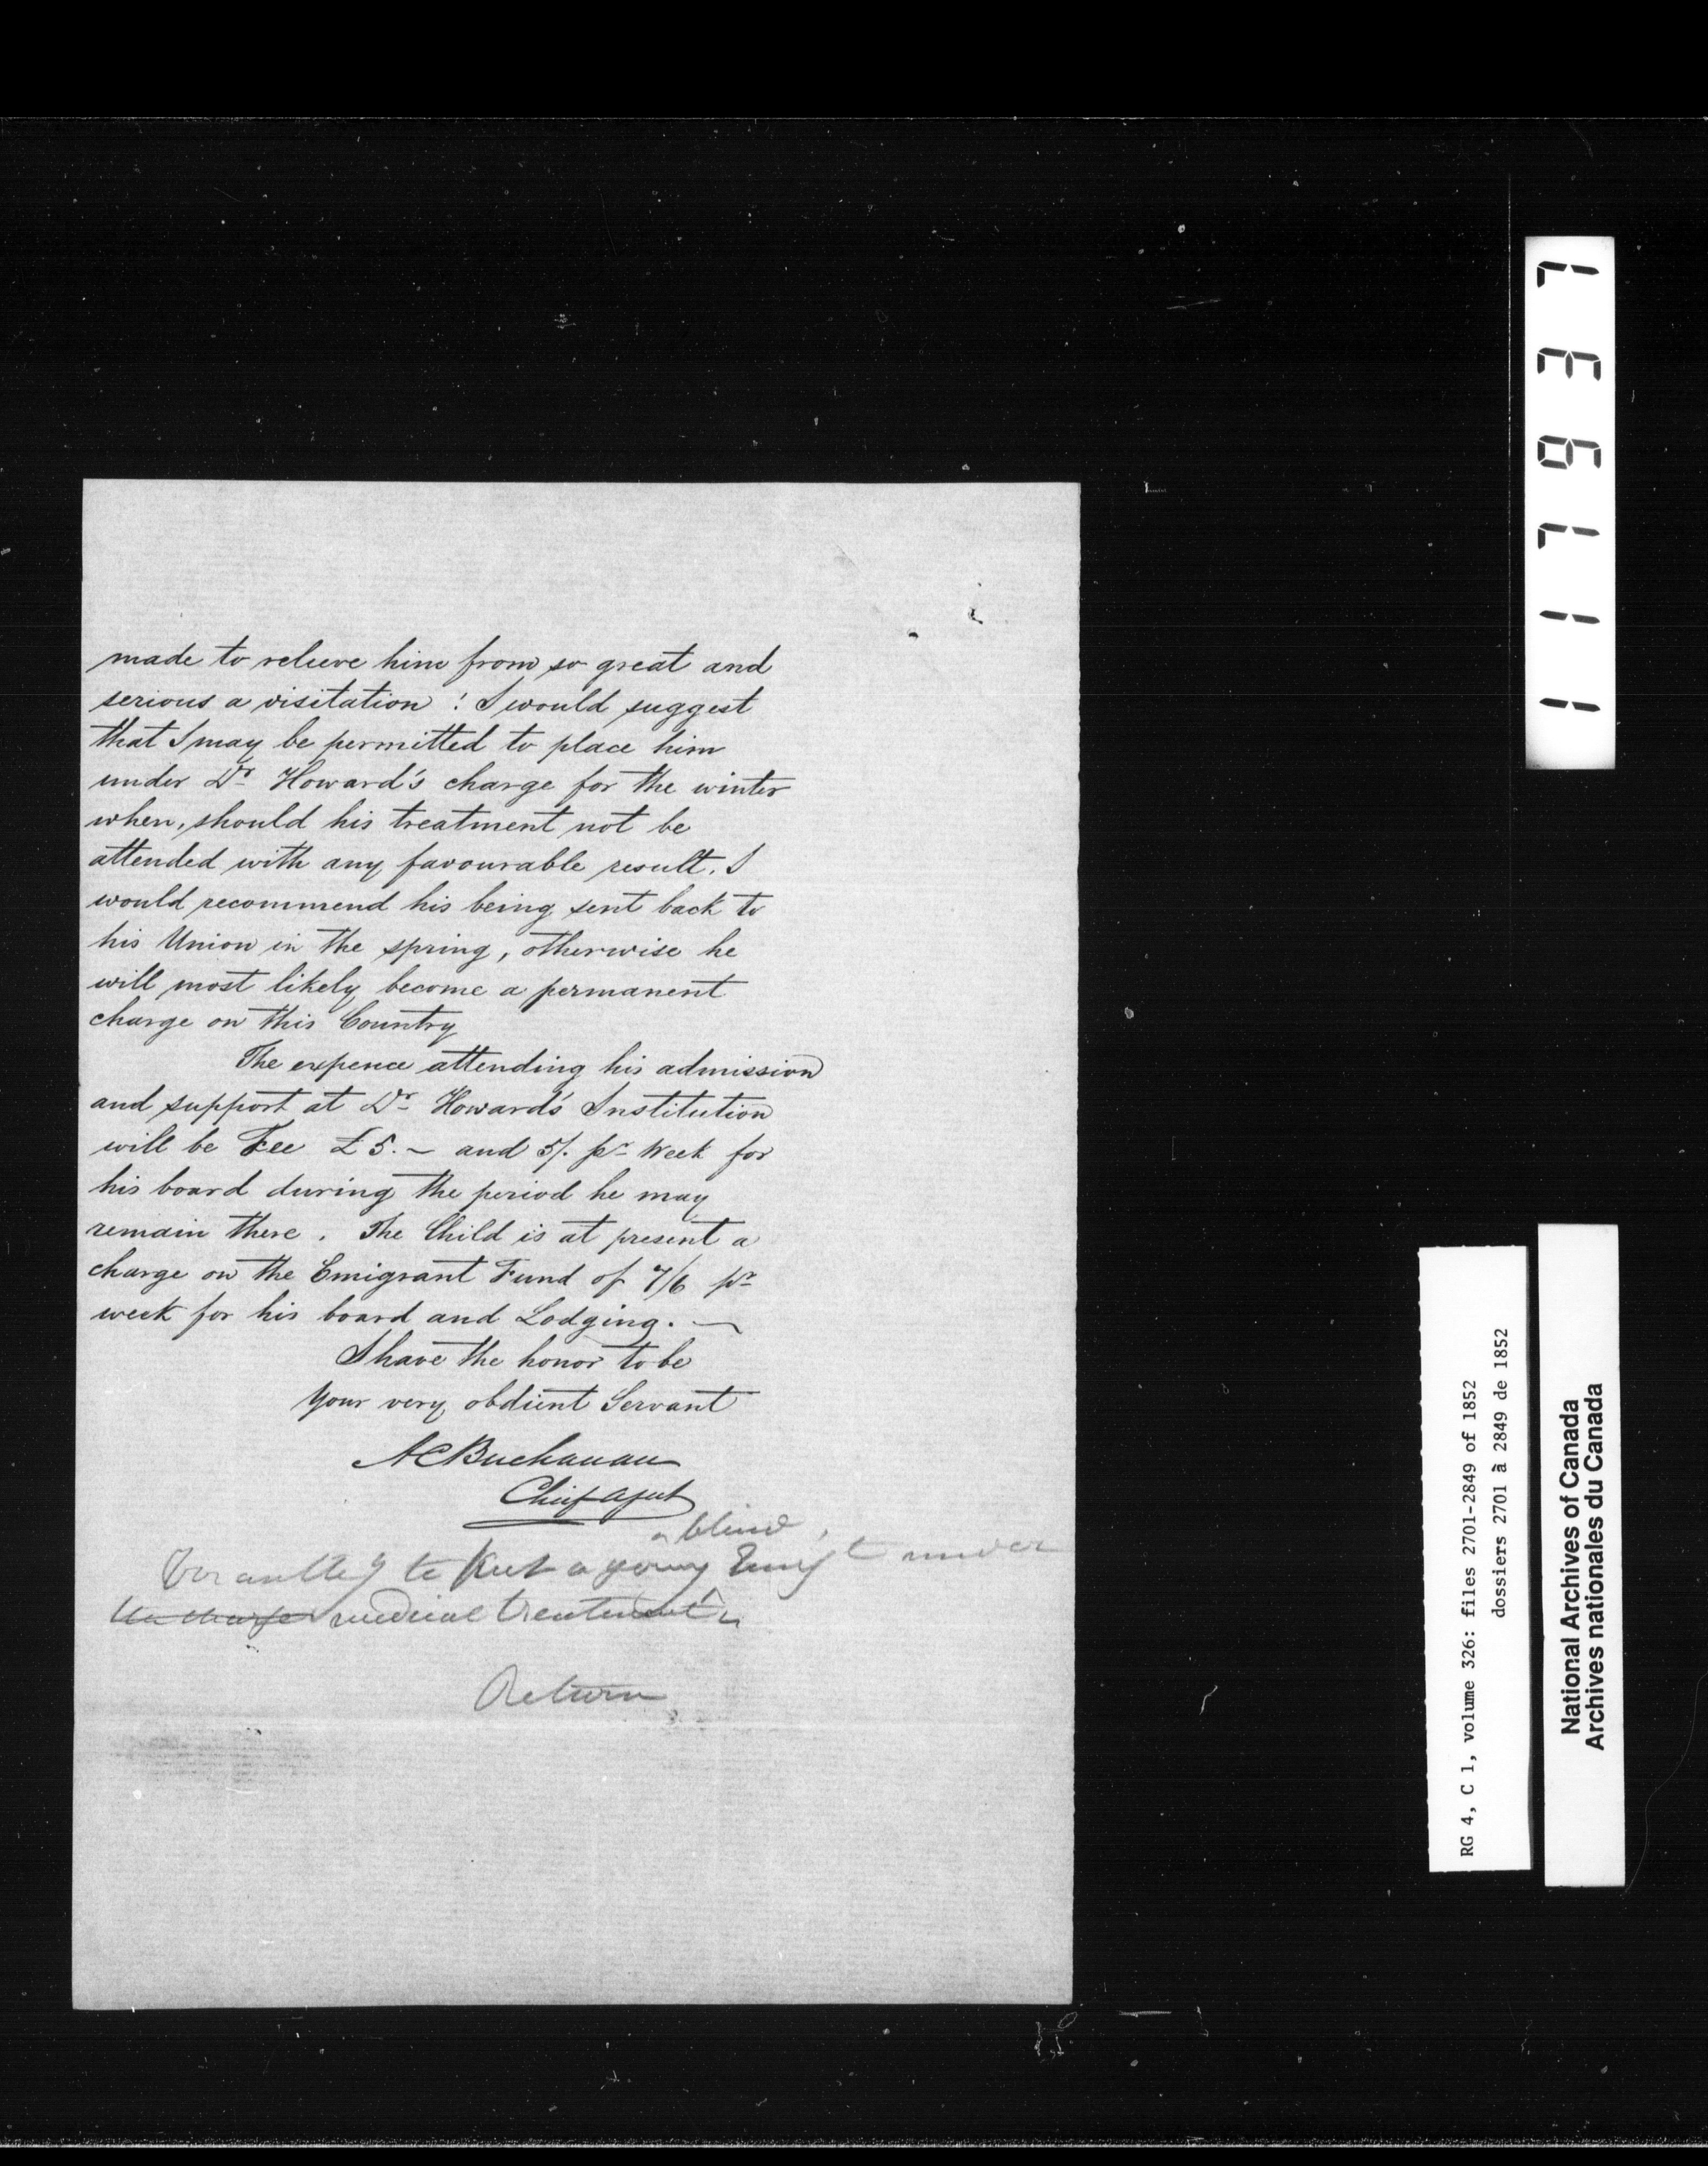 made to relieve him from so great and
serious a visitation! I would suggest
that I may be permitted to place him
under Dr Howard's charge for the winter
when, should his treatment not be
attended with any favourable result. I
would recommend his being sent back to
his Union in the spring, otherwise he
will most likely become a permanent
charge on this Country
The expence attending his admission
and support at Dr Howard's Institution
will be Fee £5.~ and 5/. pr Week for
his board during the period he may
remain there. The Child is at present a
charge on the Emigrant Fund of 7/6 pr
week for his board and Lodging. —
I have the honor to be
Your very obdient Servant
A C Buchanan
Chief Agent
blind
For authy to put a young Emigt under
medical treatment
Return
117937
RG 4, C 1, volume 326: files 2701-2849 of 1852
dossiers 2701 à 2849 de 1852
National Archives of Canada
Archives nationales du Canada